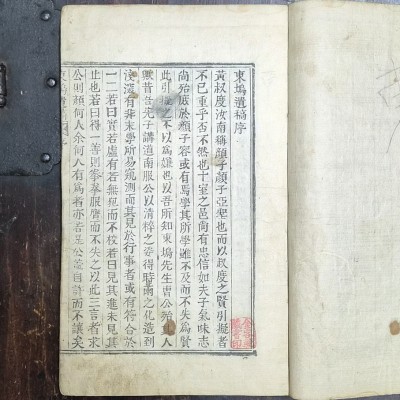 東塢遺稿序
黃叔度汝南稱顏子顏子亞聖也而以叔度之賢引擬者
不已重乎否不然也十室之邑尚有忠信如夫子氣味志
尚殆庶於顏子容或有焉學其所學雖不及而不失爲賢
此引擬之不以爲嫌也以吾所知東塢先生曺公殆其人
歟昔吾先子講道南服公以清粹之姿得時雨之化造到
淺深有非末學所易窺測而其見於行事者或有符合於
一二若曰實若虛有若無犯而不校若曰見其進未見其
止也若曰得一善則拳拳服膺而不失之以此三言者求
公則顏何人余何人有爲者亦若是公蓋自許而不讓矣